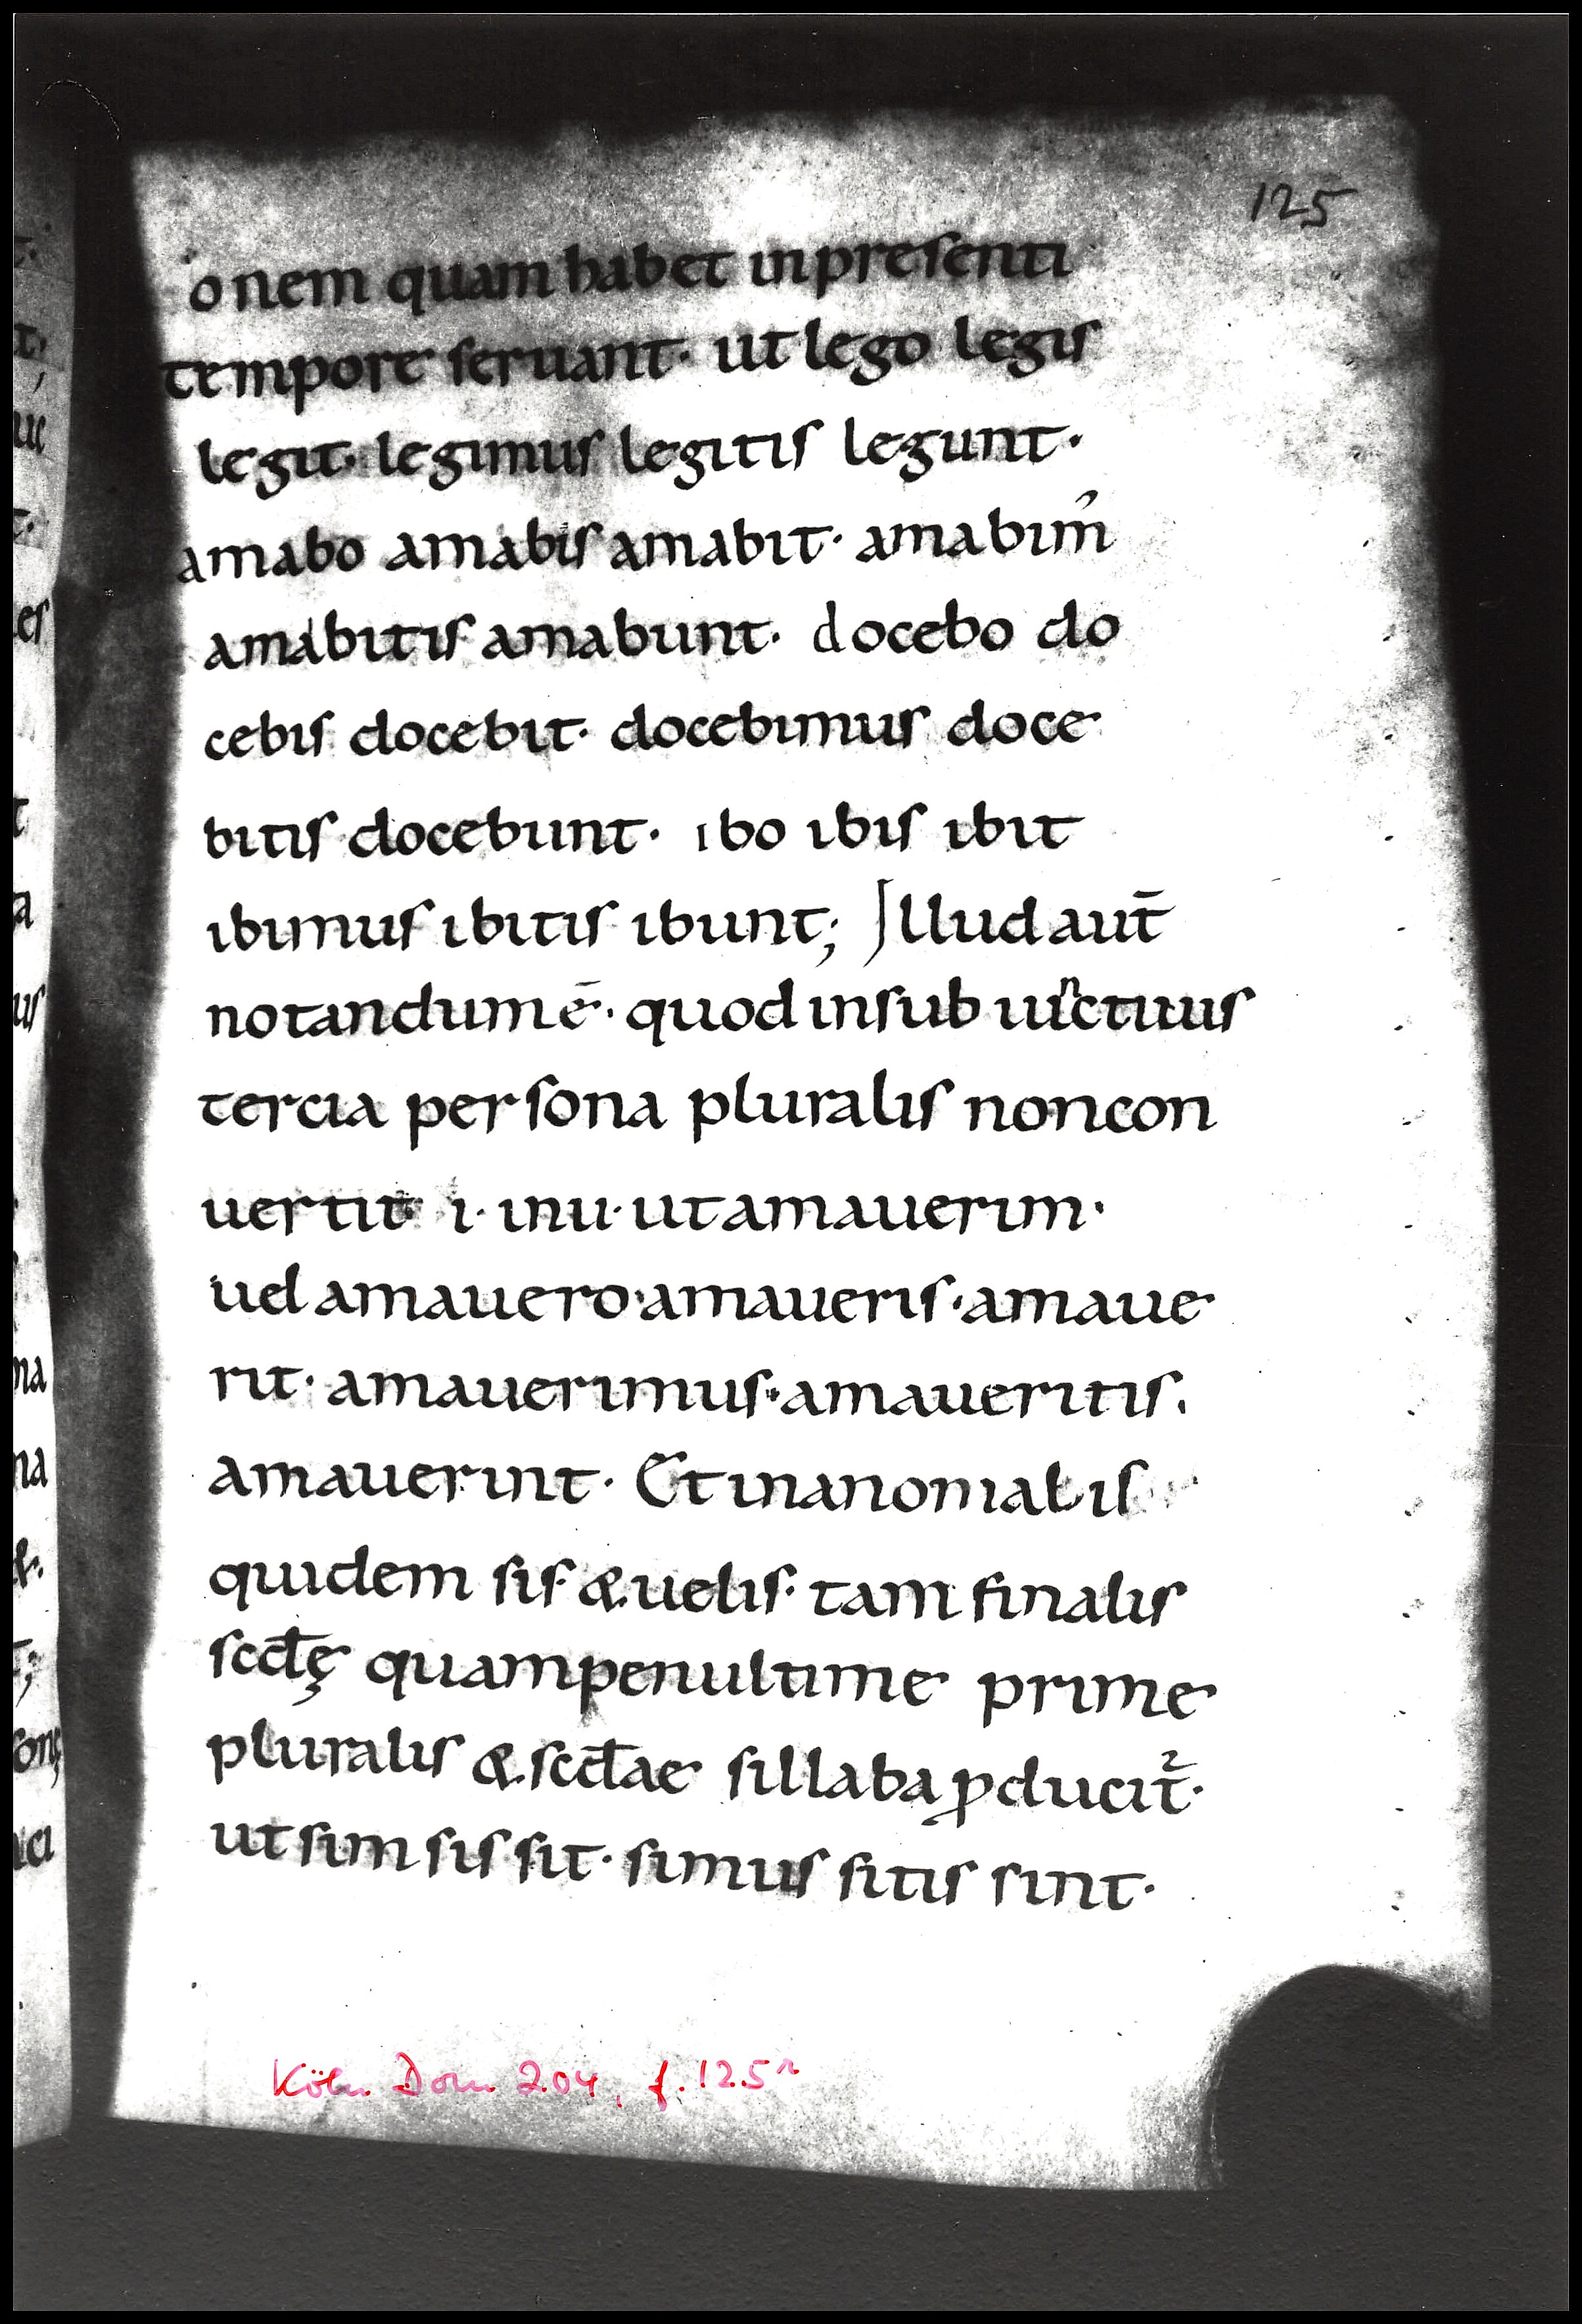 125
onem quam habet inpresenti
tempore seruant· ut lego legis
legit· legimus legitis legunt·
amabo amabis amabit· amabim᾽
amabitis amabunt· docebo do
cebis docebit· docebimus doce
bitis docebunt· ibo ibis ibit
ibimus ibitis ibunt; Illud aut̄
notandum ē· quod in sub iuñctiuis
tercia persona pluralis non con
uertit· i· in u· ut amauerim·
uel amauero· amaueris· amaue
rit· amauerimus· amaueritis·
amauerint· Et in anomalis
quidem sis· & uelis· tam finalis
scđę quam penultime prime
pluralis & scđae sillaba ꝓducit᷑·
ut sim sis sit· simus sitis sint·
Köln Dom 204, f. 125ʳ